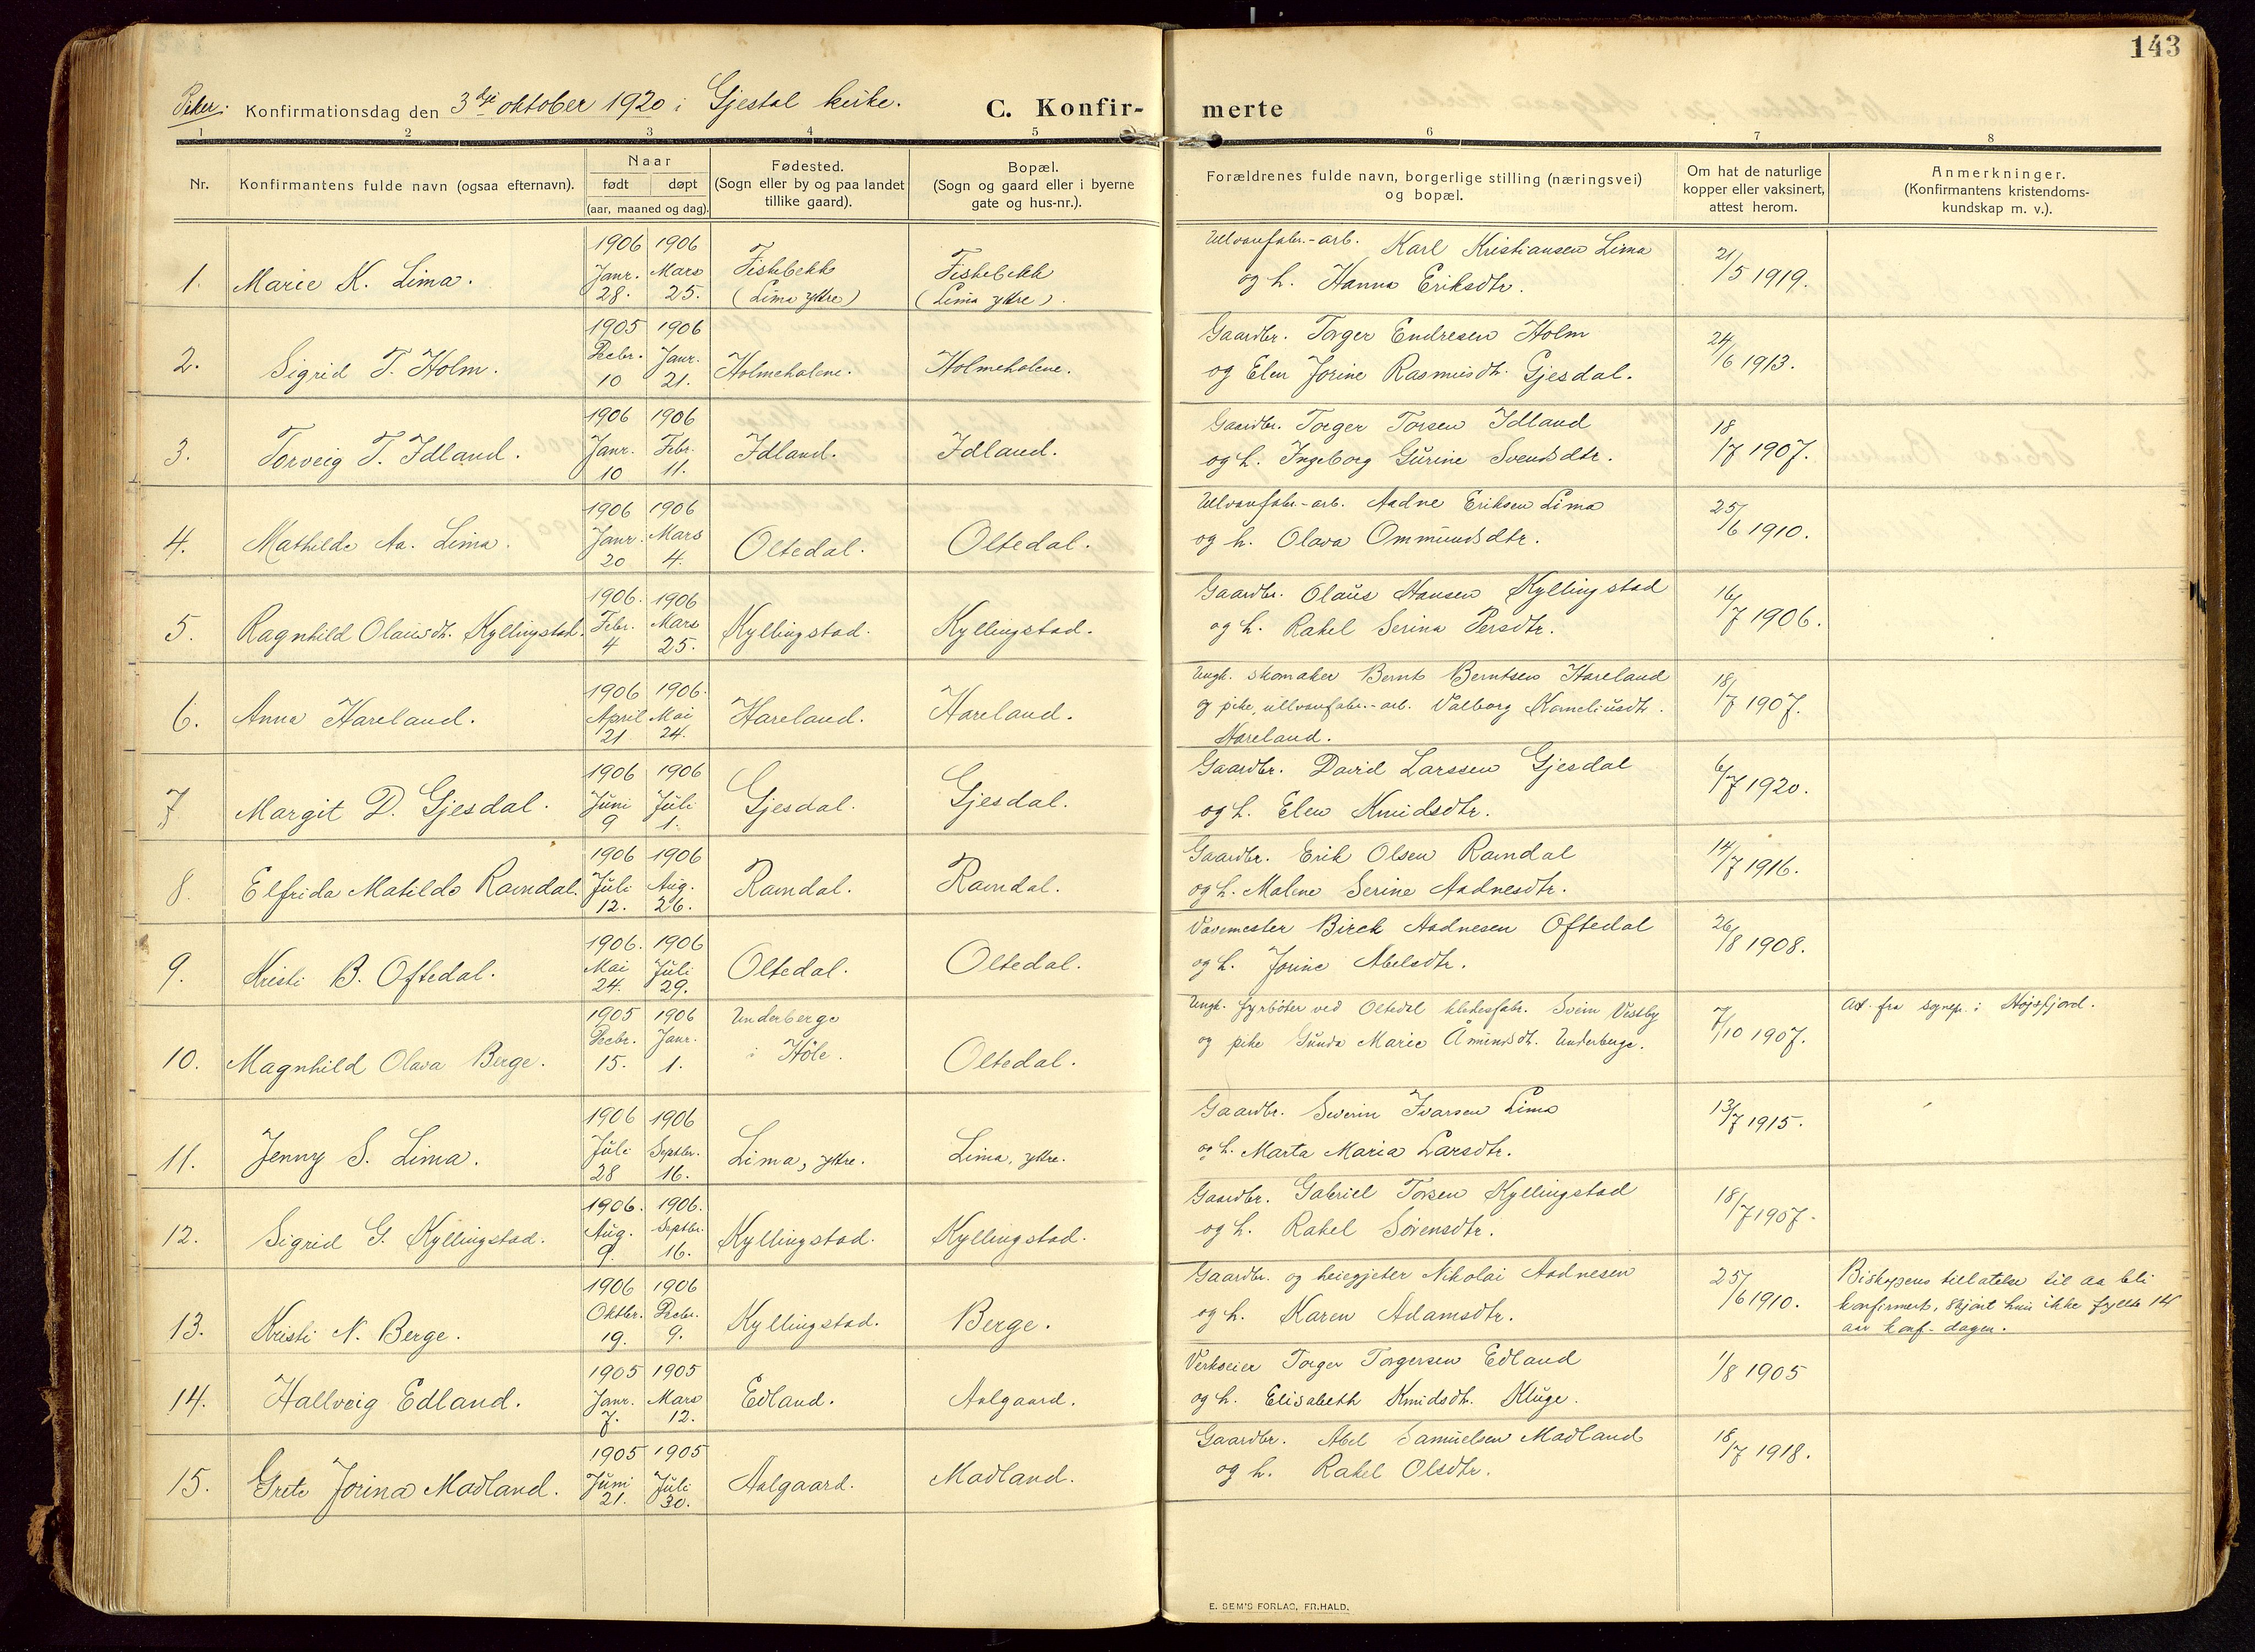 143
Piker: Konfirmationsdag den 3dje oktober 1920 i Gjestal kirke. C. Konfir- merte
1 2 3 4 5 6 7 8
Nr. Konfirmantens fulde navn (ogsaa efternavn). Naar født døpt (aar, maaned og dag). Fødested. (Sogn eller by og paa landet tillike gaard). Bopæl. (Sogn og gaard eller i byerne gate og hus-nr.). Forældrenes fulde navn, borgerlige stilling (næringsvei) og bopæl. Om hat de naturlige kopper eller vaksinert, attest herom. Anmerkninger. (Konfirmantens kristendoms- kundskap m. v.).
1. Marie K. Lima. 1906 Janr. 28. 1906 Mars 25. Fiskebekk (Lima ytre) Fiskebekk (Lima ytre). Ullvarefabr.-arb. Karl Kristiansen Lima
og h. Hanna Eriksdtr. 21/5 1919.
2. Sigrid T. Holm. 1905 Decbr. 10 1906 Janr. 21. Holmeholene. Holmeholene. Gaardbr. Torger Endresen Holm
og Elen Jorine Rasmusdtr. Gjesdal. 24/6 1913.
3. Torveig T. Idland. 1906 Janr. 10 1906 Febr. 11. Idland. Idland. Gaardbr. Torger Torsen Idland
og h. Ingeborg Gurine Svendsdtr. 18/7 1907.
4. Mathilde Aa. Lima. 1906 Janr. 20 1906 Mars 4. Oltedal. Oltedal. Ullvarefabr.-arb. Aadne Eriksen Lima
og h. Olava Ommundsdtr. 25/6 1910.
5. Ragnhild Olausdtr. Kyllingstad. 1906. Febr. 4 1906 Mars 25. Kyllingstad. Kyllingstad. Gaardbr. Olaus Hansen Kyllingstad
og h. Rakel Serina Persdtr. 16/7 1906.
6. Anna Hareland. 1906 April 21 1906. Mai 24. Hareland. Hareland. Ungk. skomaker Bernt Berntsen Hareland
og pike, ullvarefabr.-arb. Valborg Korneliusdtr.
Hareland. 18/7 1907.
7 Margit D. Gjesdal. 1906 Juni 9 1906 Juli 1. Gjesdal. Gjesdal. Gaardbr. David Larssen Gjesdal
og h. Elen Knudsdtr. 6/7 1920.
8. Elfrida Matilde Ravndal. 1906 Juli 12. 1906 Aug. 26. Ravndal. Ravndal. Gaardbr. Erik Olsen Ravndal
og h. Malene Serine Aadnesdtr. 14/7 1916.
9. Kristi B. Oftedal. 1906. Mai 24. 1906 Juli 29. Oltedal. Oltedal. Vævemester Birek Aadnesen Oftedal
og h. Jorine Abelsdtr. 26/8 1908.
10. Magnhild Olava Berge. 1905 Decbr. 15. 1906 Janr. 1. Underberge i Høle. Oltedal. Ungk. fyrbøter ved Oltedal klædesfabr. Svein Vestby
og pike Gunda Marie Åmundsdtr. Underberge. 7/10 1907. At. fra sognep. i Høgsfjord.
11. Jenny S. Lima. 1906 Juli 28 1906 Septbr. 16. Lima, ytre. Lima, ytre. Gaardbr. Severin Ivarsen Lima
og h. Marta Maria Larsdtr. 13/7 1915.
12. Sigrid G. Kyllingstad. 1906. Aug. 9. 1906. Septbr. 16. Kyllingstad. Kyllingstad. Gaardbr. Gabriel Torsen Kyllingstad
og h. Rakel Sørensdtr. 18/7 1907.
13. Kristi N. Berge. 1906 Oktbr. 19. 1906 Decbr. 9. Kyllingstad. Berge. Gaardbr. og heiegjeter Nikolai Aadnesen
og h. Karen Adamsdtr. 25/6 1910. Biskopens tillatelse til aa bli
konfirmert, skjønt hun ikke fyllte 14
aar konf-dagen.
14. Hallveig Edland. 1905 Janr. 7. 1905 Mars 12. Edland. Aalgaard. Verkseier Torger Torgersen Edland
og h. Elisabeth Knudsdtr. Kluge. 1/8 1905
15. Grete Jorina Madland. 1905 Juni 21. 1905 Juli 30. Aalgaard. Madland. Gaardbr. Abel Samuelsen Madland
og h. Rakel Olsdtr. 18/7 1918.
E. SEM'S FORLAG, FR.HALD.